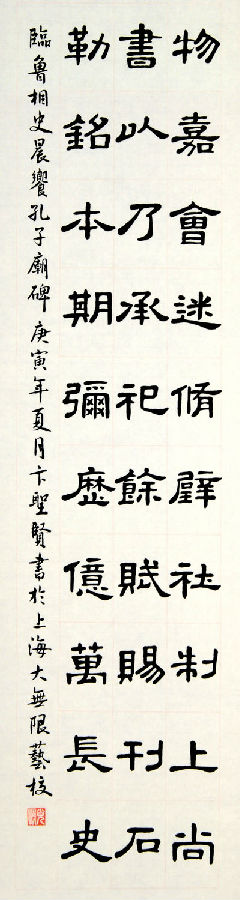 物嘉會述脩辟社制上尚
書以乃承祀餘賦賜刊石
勒銘本期彌歷億萬長史
臨魯相史晨饗孔子廟碑庚寅年夏月卞聖賢書於上海大無限藝校